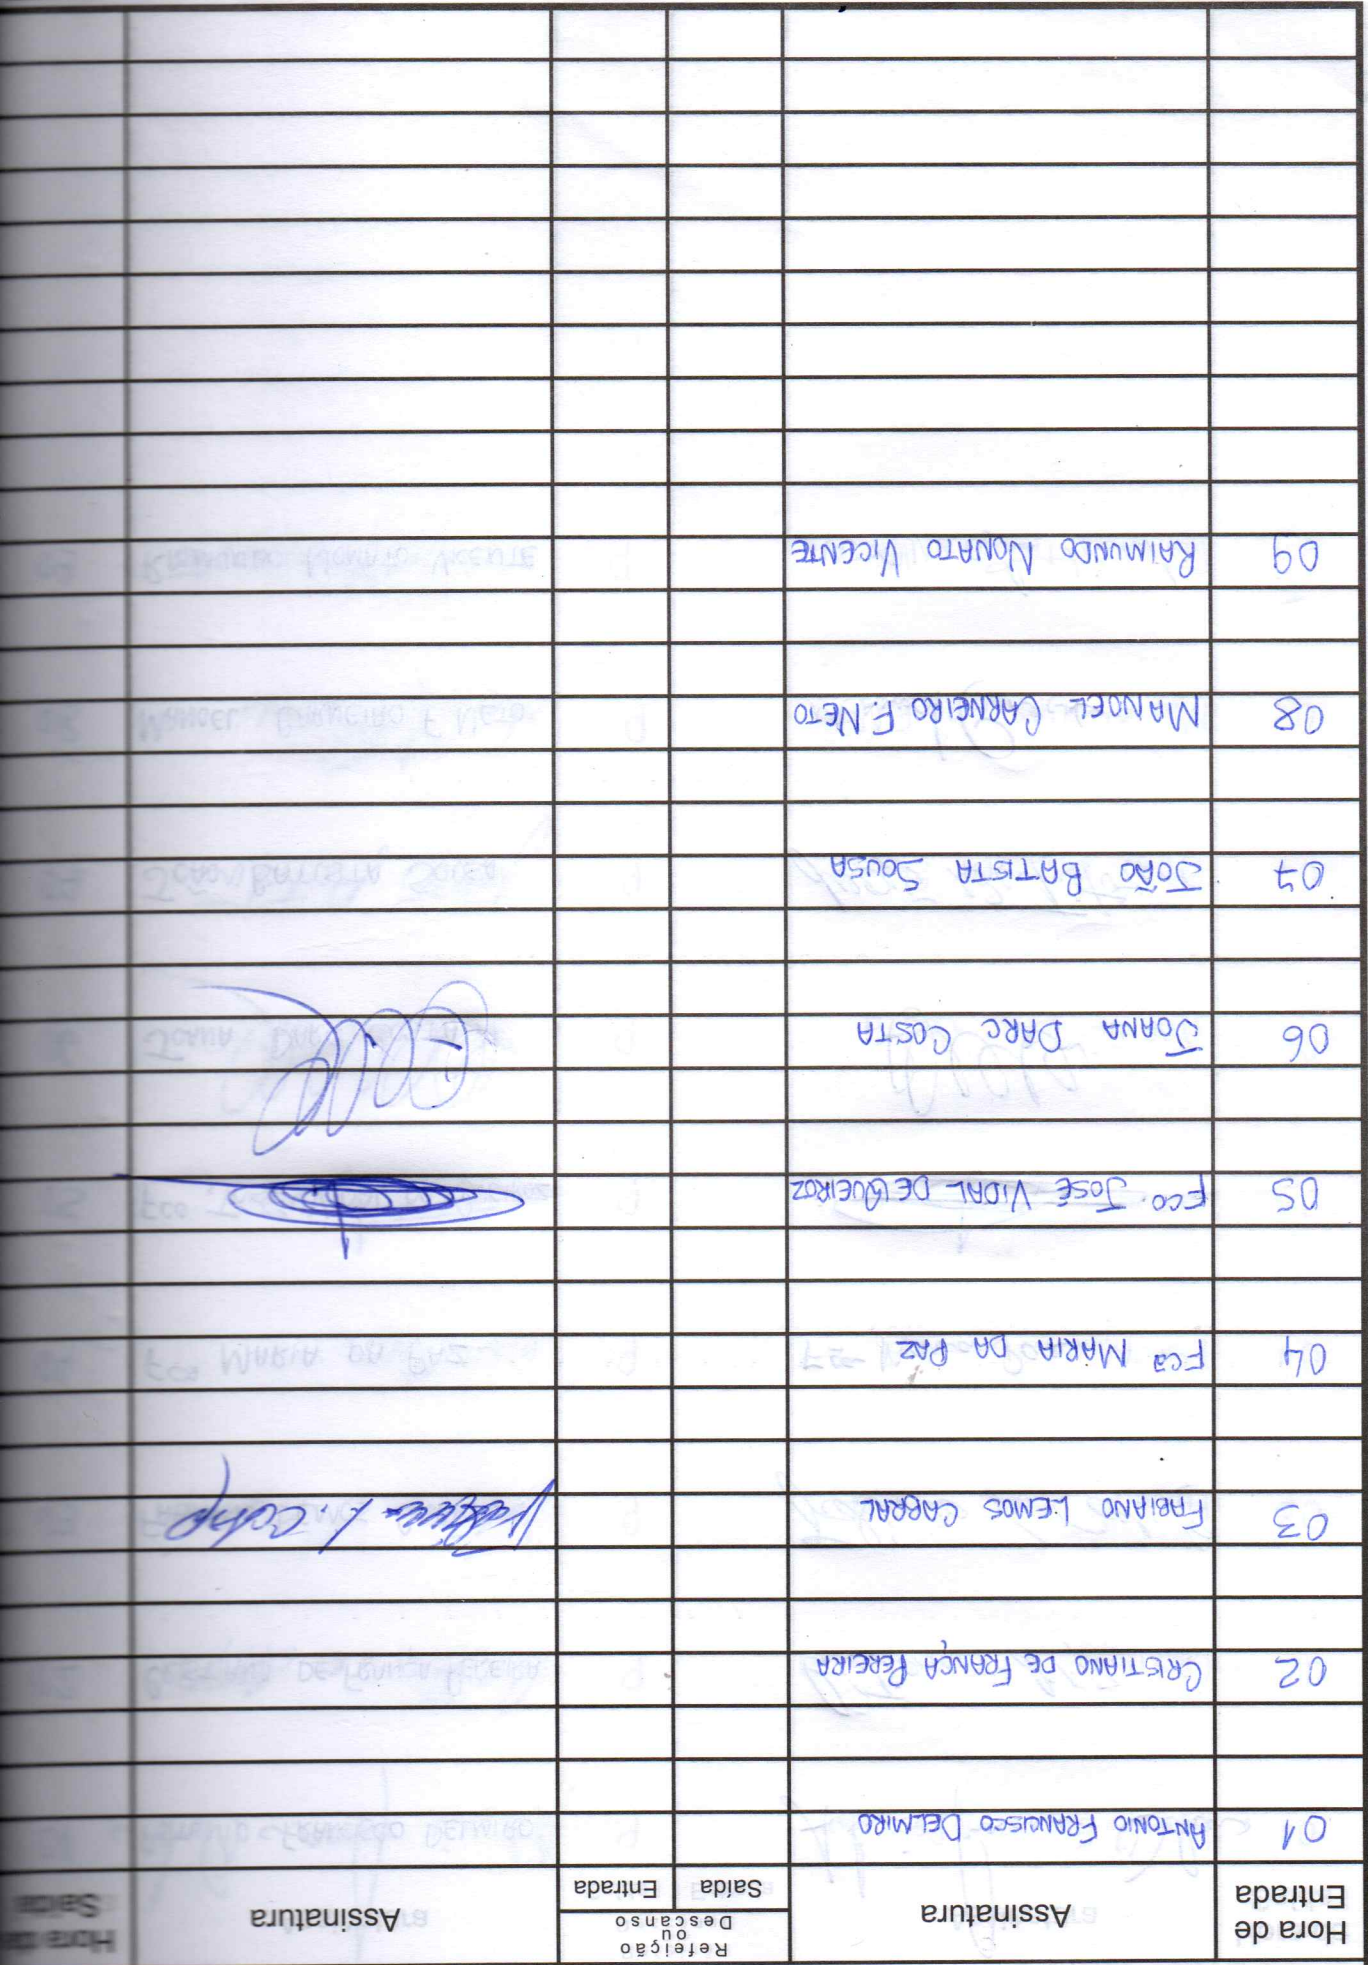 Hora de Entrada
Assinatura
Refeição ou Descanso
Saída
Entrada
Assinatura
Hora de Saída
01 ANTONIO FRANCISCO DELMIRO
02 CRISTIANO DE FRANÇA PEREIRA
03 FABIANO LEMOS CABRAL
04 Fca MARIA DA PAZ
05 FCO. JOSÉ VIDAL DE QUEIROZ
06 JOANA DARC COSTA
07 JOÃO BATISTA SOUSA
08 MANOEL CARNEIRO F. NETO
09 RAIMUNDO NONATO VICENTE